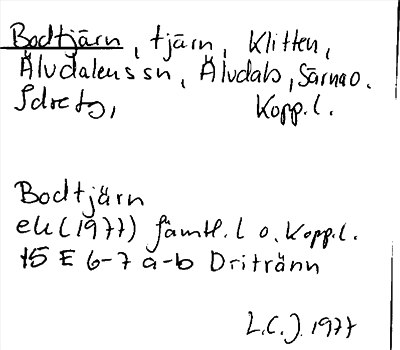 Bodtjärn, tjärn, Klitten,
Älvdalens sn, Älvdals, Särna o.
Idre tg, Kopp.l.
Bodtjärn
ek (1977) Jämtl. l o. Kopp.l.
15 E 6-7 a-b Dritränn
L.C.J. 1977